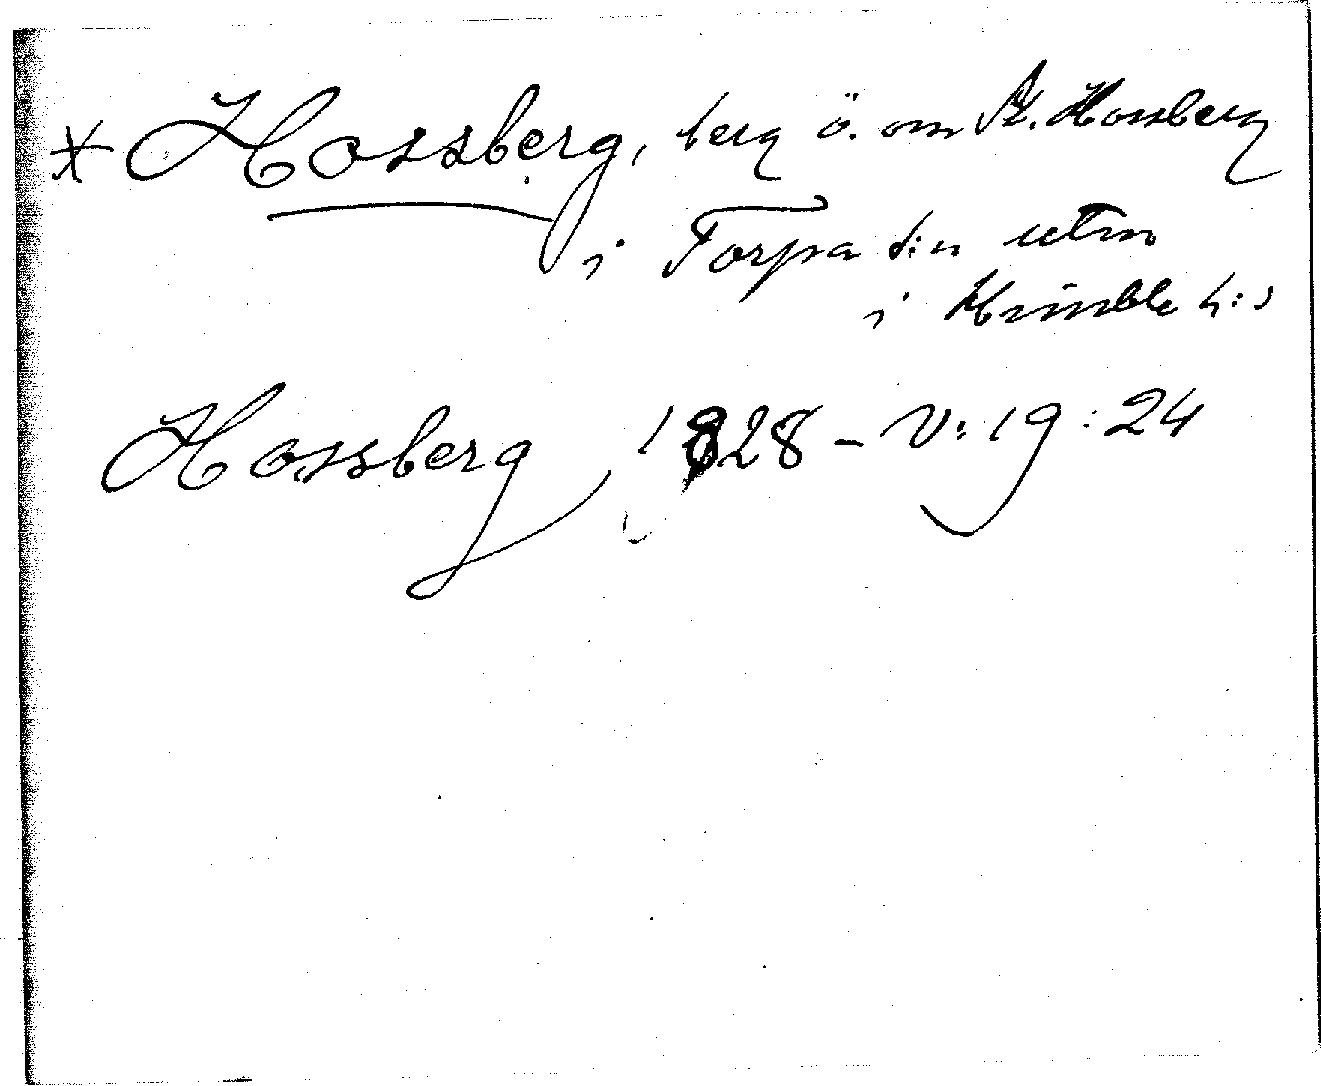 * Hossberg, berg ö. om St. Hossberg
i Torpa s:n utm
i Himble h:d
Hossberg 1828 - V: 19: 24